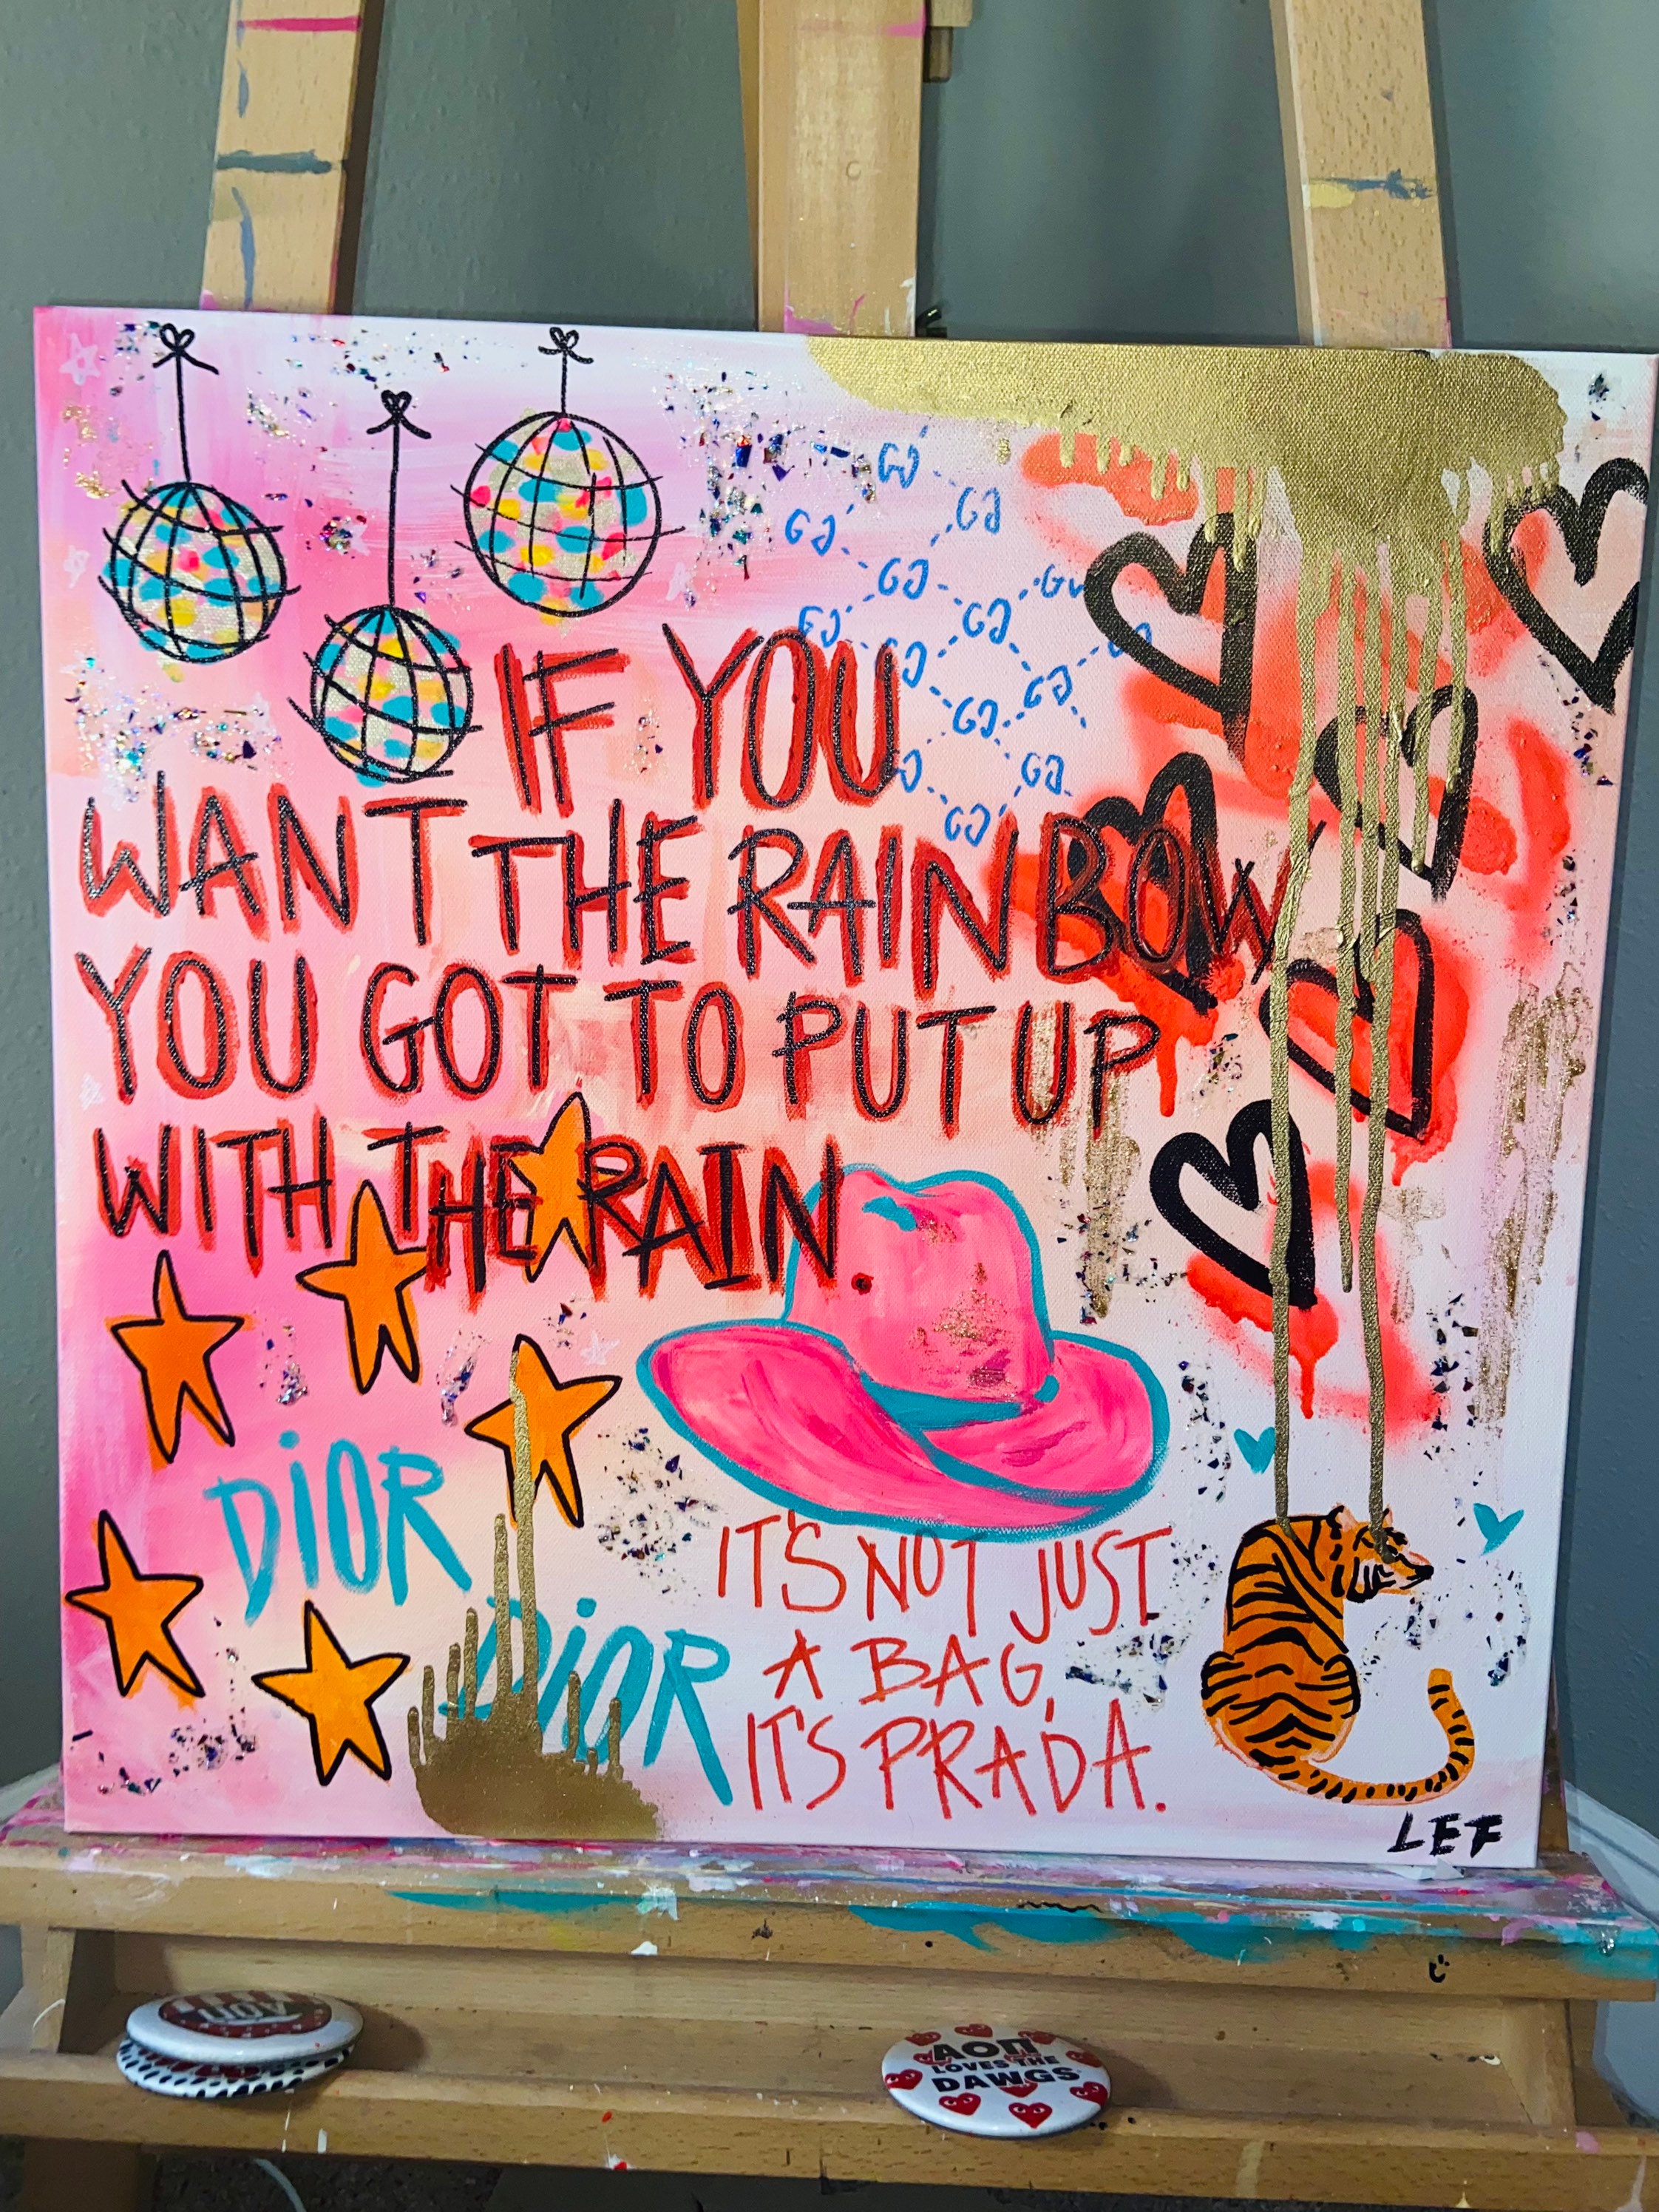 IF YOU
WANT THE RAINBOW
YOU GOT TO PUT UP
WITH THE RAIN
DiOR
DiOR
IT'S NOT JUST
A BAG,
IT'S PRADA.
LEF
ΑΟΠ
ΑΟΠ
LOVES THE
DAWGS